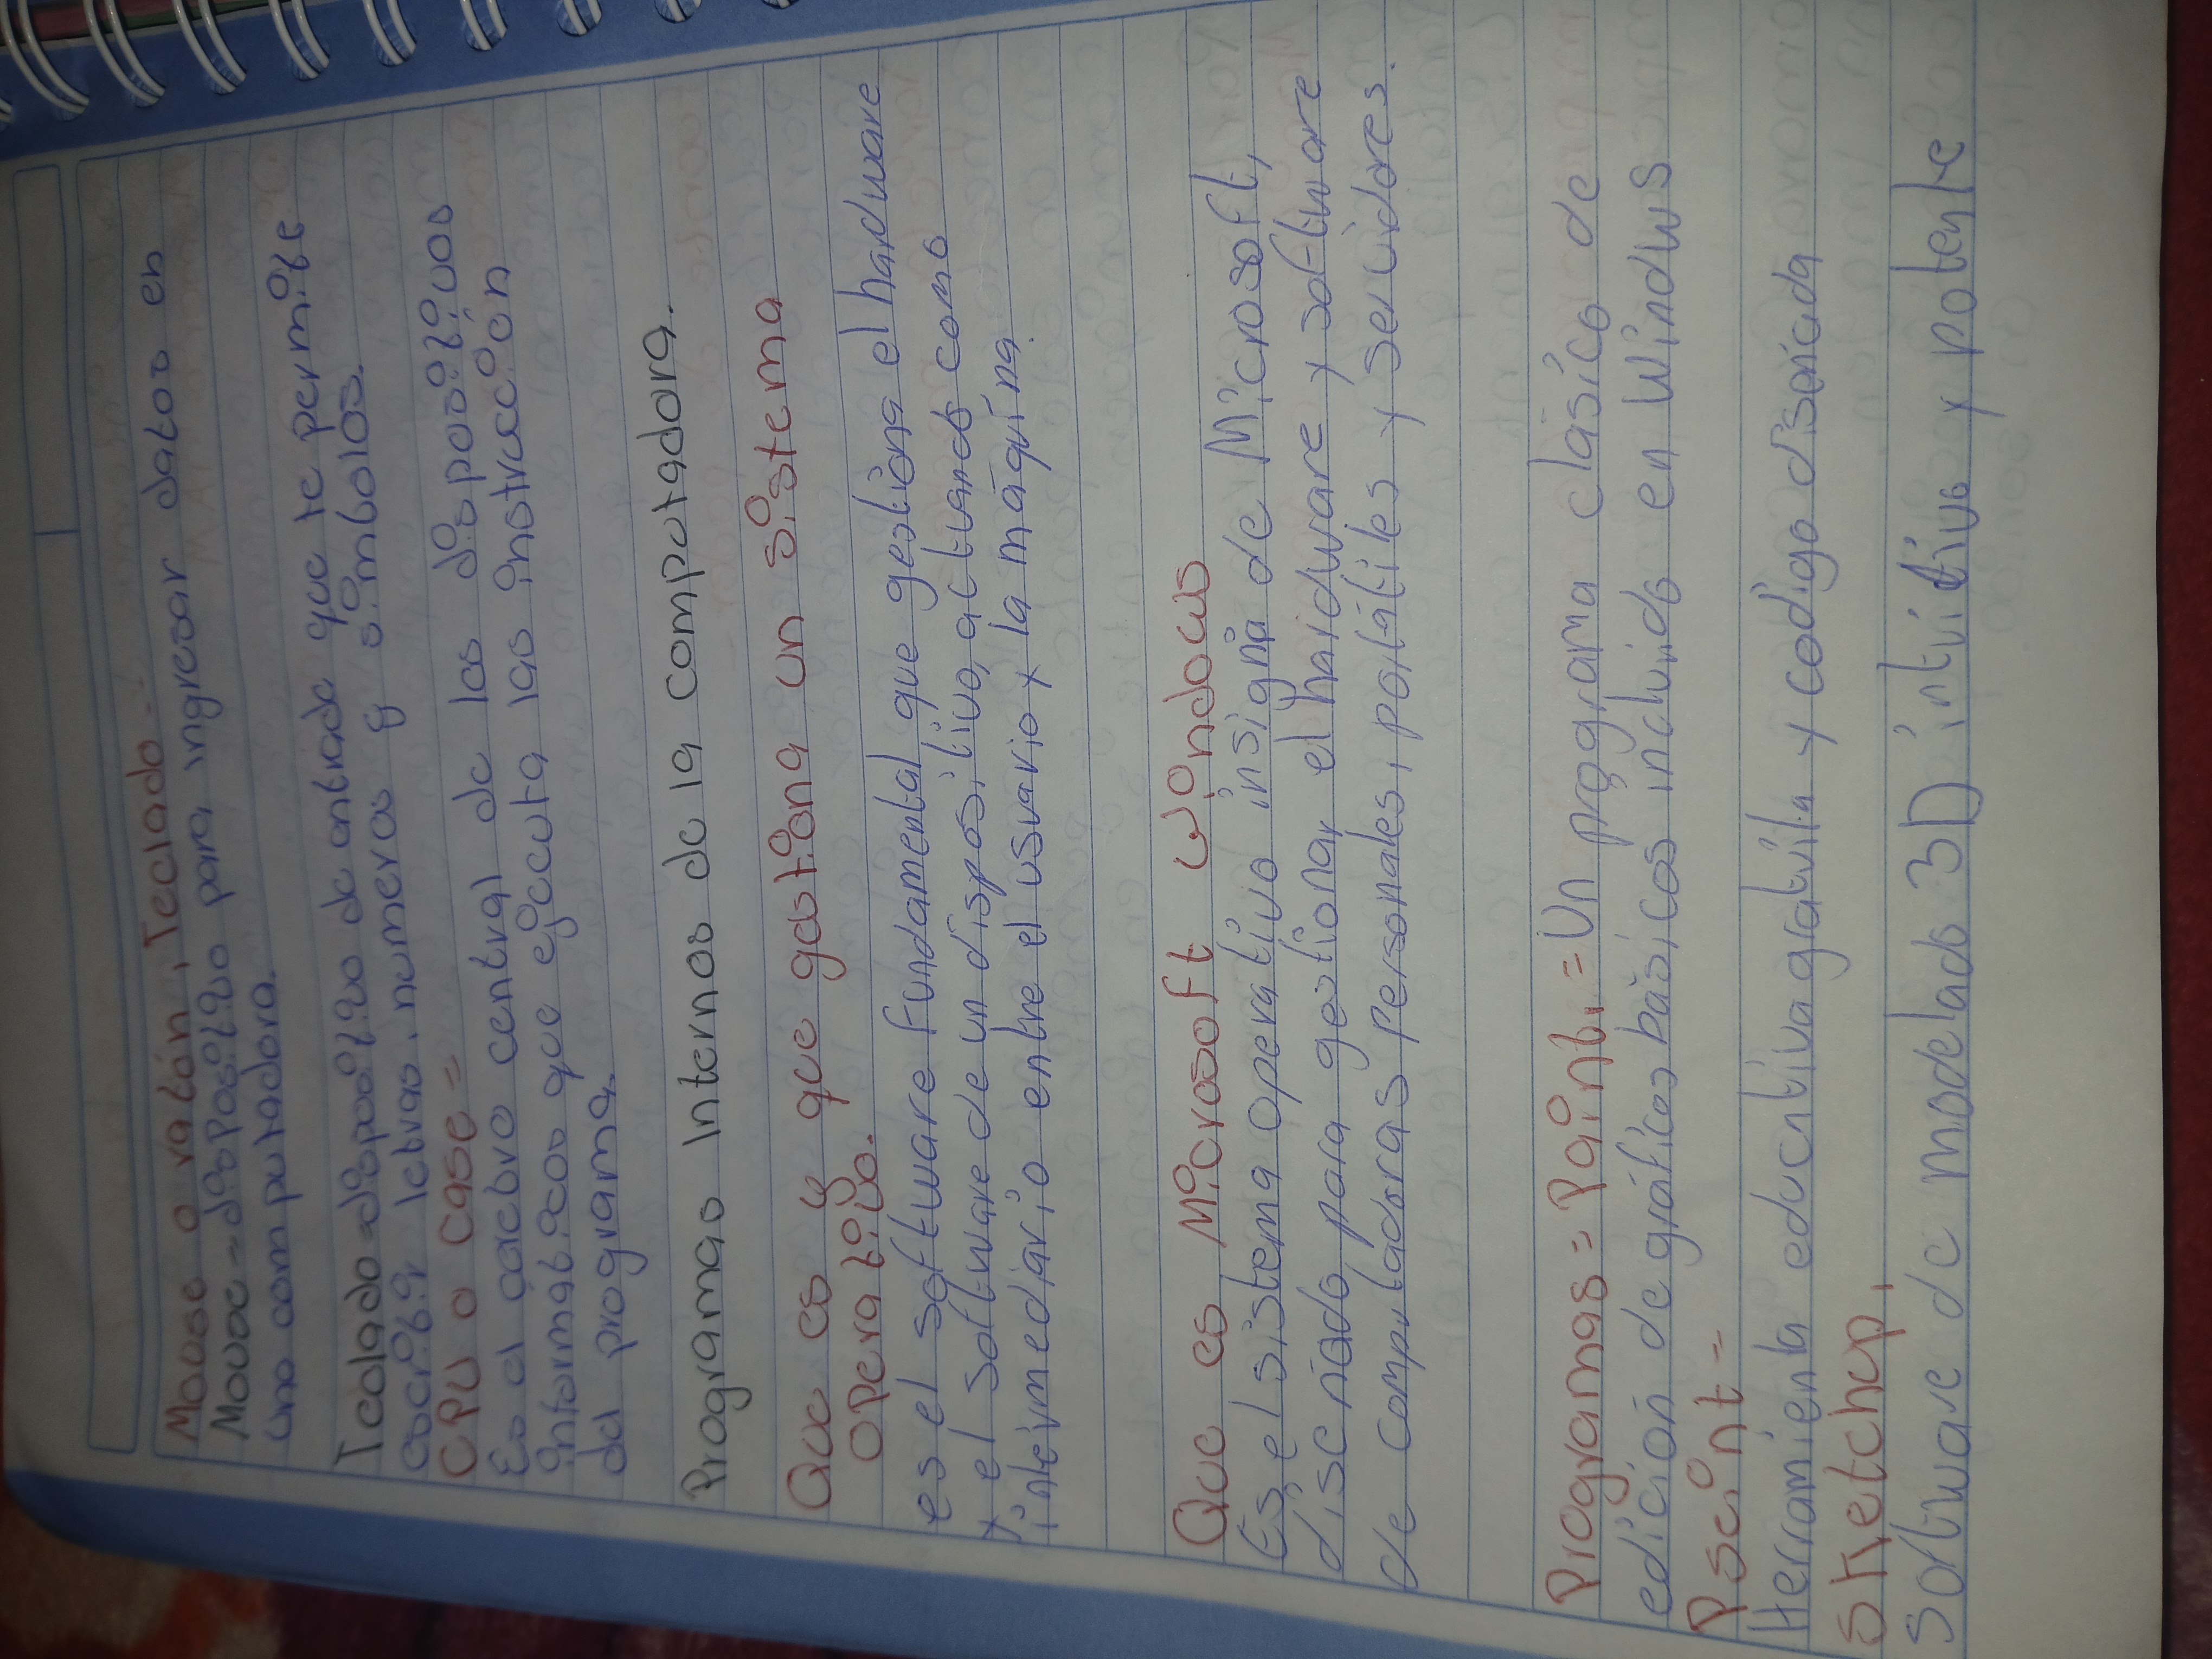 Mouse o ratón, Teclado-
Mouse - disPositivo para ingresar datos en
una computadora.
Teclado = dispositivo de entrada que te permite
escribir letras, numeros y símbolos.
CPU o case =
Es el cerebro central de los dispositivos
informáticos que ejecuta las instrucción
del programa.
Programas Internos de la computadora.
Que es y que gestiona un sistema
operativo.
es el software fundamental que gestiona el hardware
y el software de un dispositivo, actuando como
intermediario entre el usuario y la máquina.
Que es Microsoft windows
Es el sistema operativo insignia de Microsoft,
diseñado para gestionar el hardware y software
de computadoras personales, portátiles y servidores.
Programas = Paint. = Un programa clásico de
edición de gráficos básicos incluido en Windws
Pseint =
Herramienta eductiva gratuita y codigo diseñada
Shetchup,
Software de modelado 3D intitivo y potente